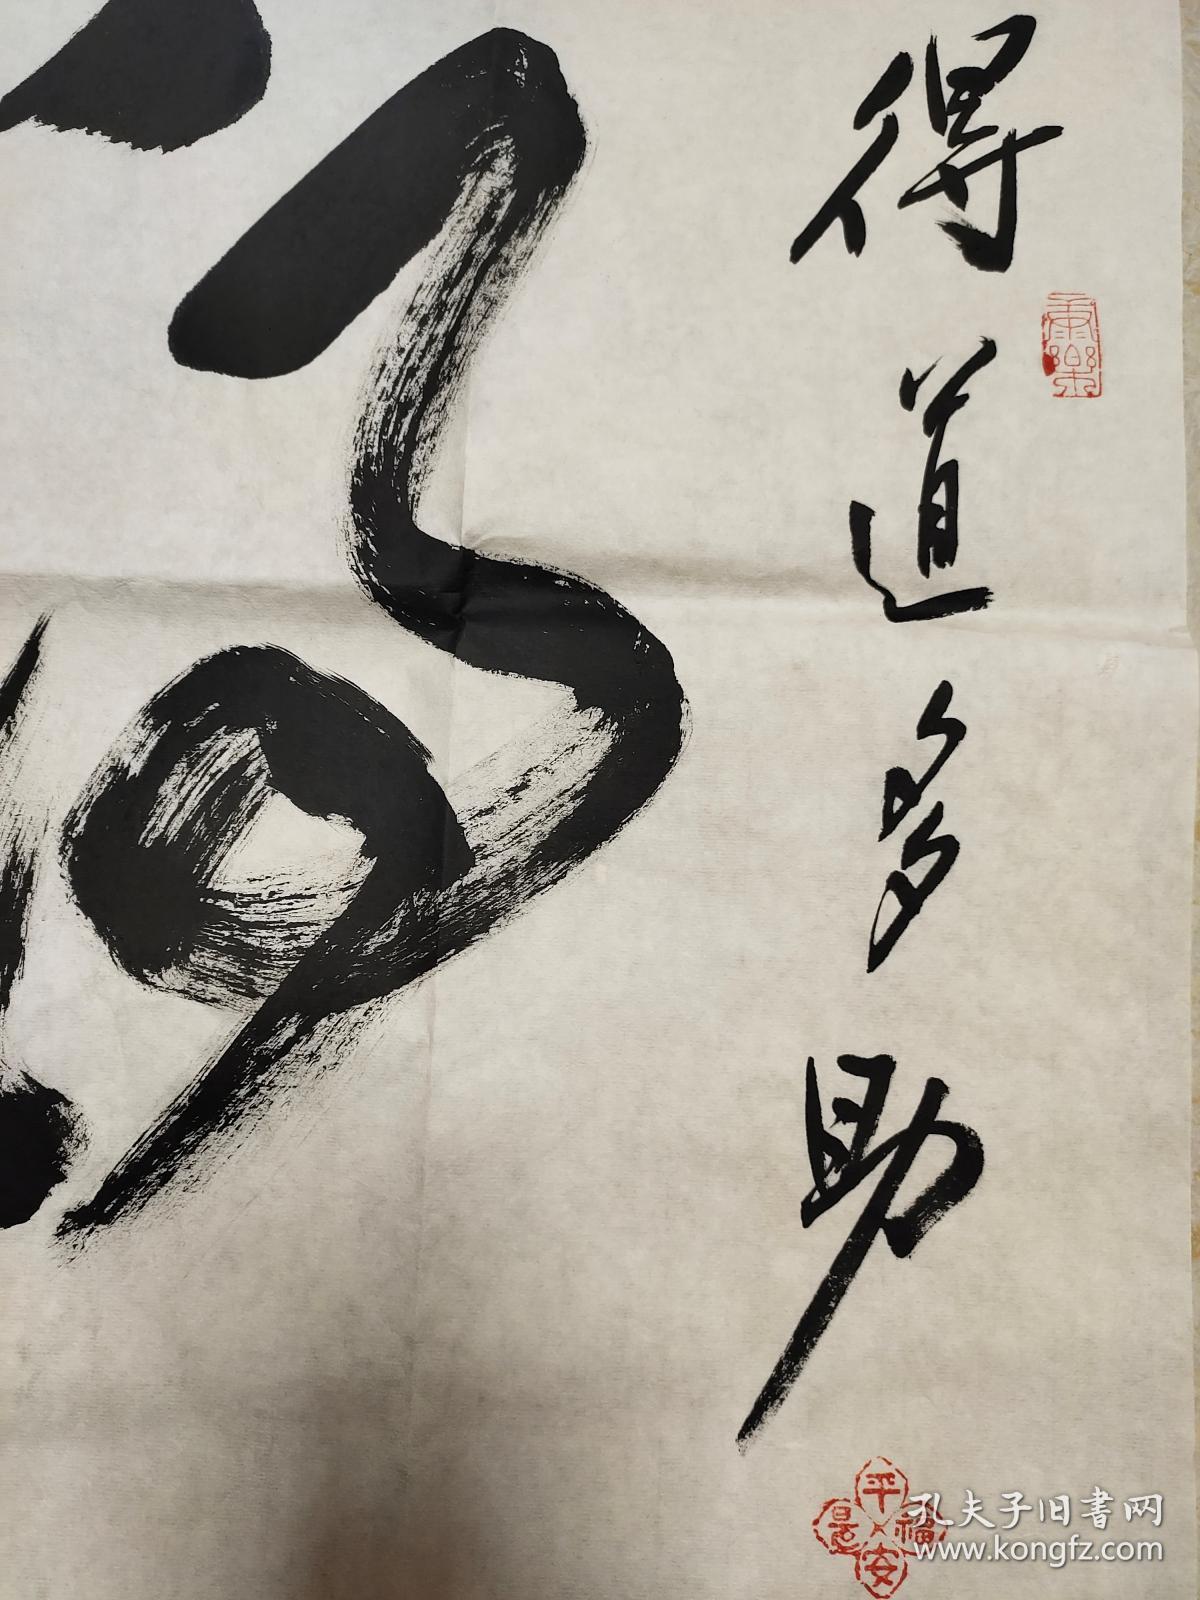 得道多助
康樂
平安是福
孔夫子旧书网
www.kongfz.com